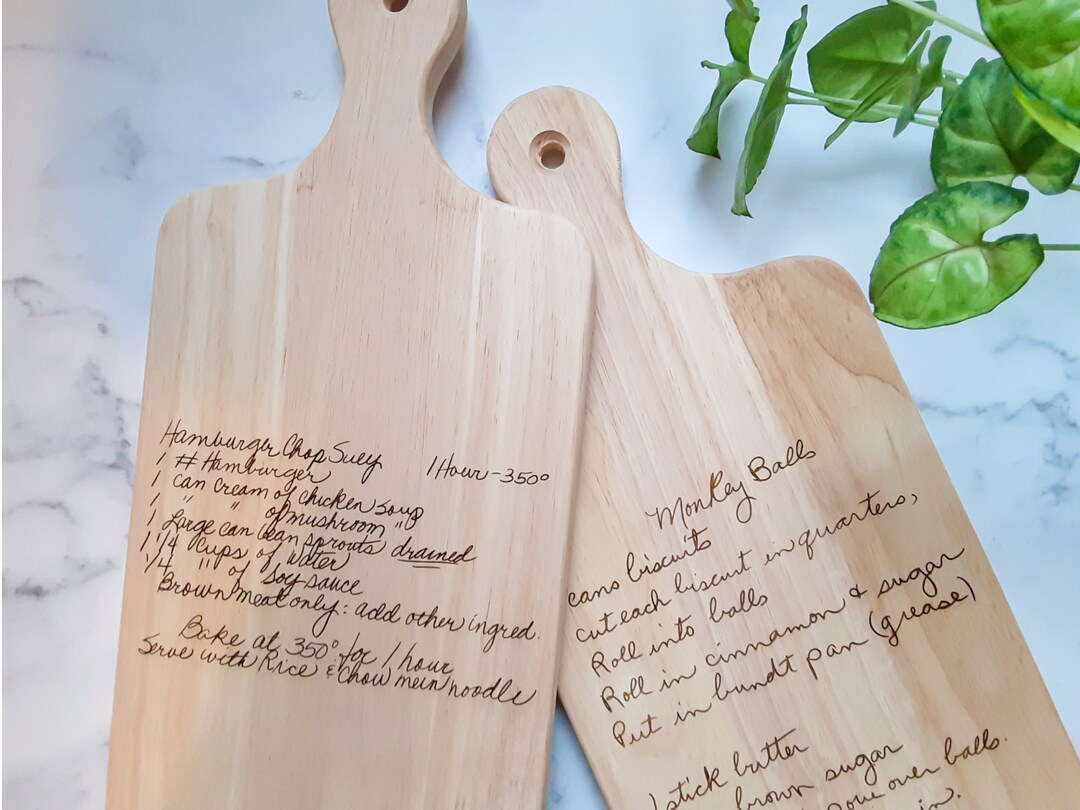 Hamburger Chop Suey 1 Hour - 350°
1 # Hamburger
1 can cream of chicken soup
1 " " of mushroom "
1 Large can bean sprouts drained
1 1/4 cups of water
1/4 " of soy sauce
Brown meat only: add other ingred.
Bake at 350° for 1 hour
Serve with Rice & chow mein noodle
Monkey Balls
cans biscuits
cut each biscuit in quarters,
Roll into balls
Roll in cinnamon & sugar
Put in bundt pan (grease)
1 stick butter
brown sugar
over balls.